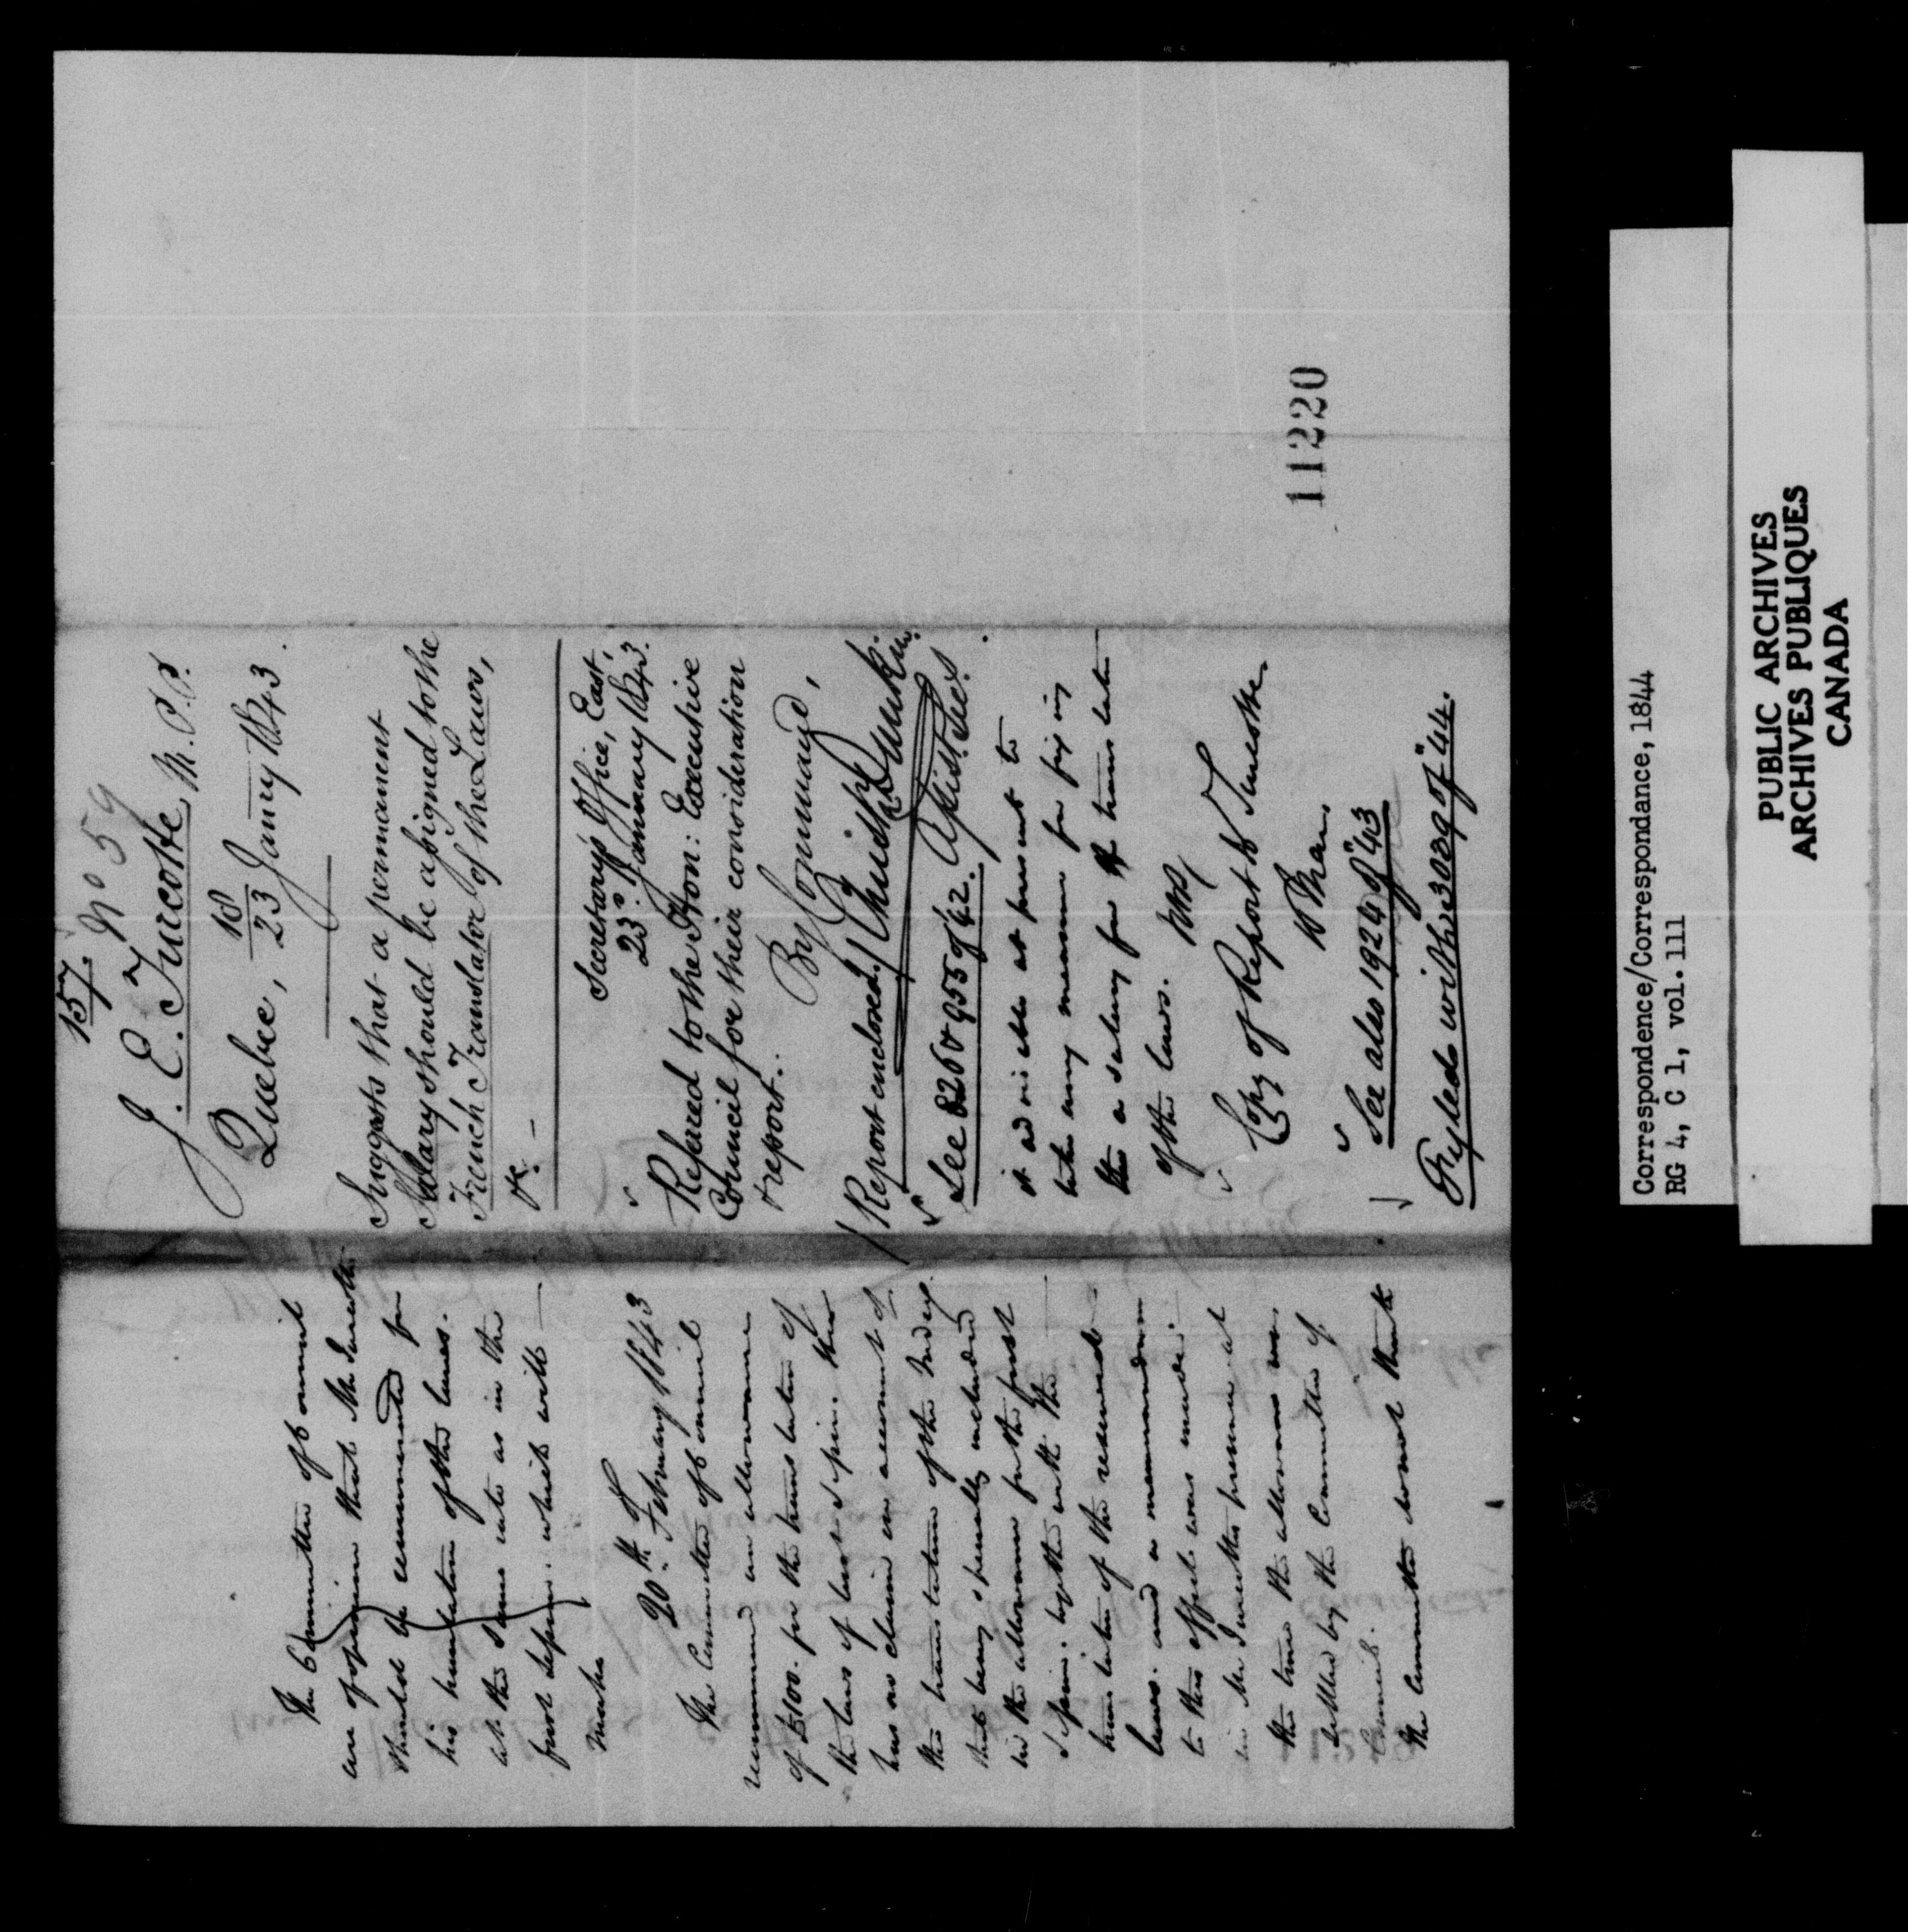 The Committee of Council
are of opinion that Mr Turcotte
should be remunerated for
his translation of the laws.
at the same rate as in the
first Session. which will

20th February 1843
The Committee of Council
recommend an allowance
of £100. for the translation of
the laws of last Session.
has no claim on account of
the translation of the Index
that being specially included
in the allowance for the first
Session. together with the
translation of the reserved
laws. and a memorandum
to this effect was made.
in Mr Turcotte's presence at
the time the allowance was
settled by the Committee of
Council.
The Committee do not think
157.
No 59
J. E. Turcotte, M.P.P.
Quebec, 18/23 Jany 1843.
Suggests that a permanent
Salary should be assigned to the
French Translator of the Laws,
&c. –
Secretary's Office, East,
23d January 1843.
Refered to the Hon: Executive
Council for their consideration
& report.
By Command,
Report enclosed.
Christn Dunkin
Assist. Sec.
See 826 & 955 of 42.
it advisable at present to
take any measure for fixing
the a salary for of translator
of the laws.
Copy of Report to Turcotte
See also 1924 of "43
Fyled with 3039 of "44.
11220
Correspondence/Correspondance, 1844
RG 4, C 1, vol. 111
PUBLIC ARCHIVES
ARCHIVES PUBLIQUES
CANADA